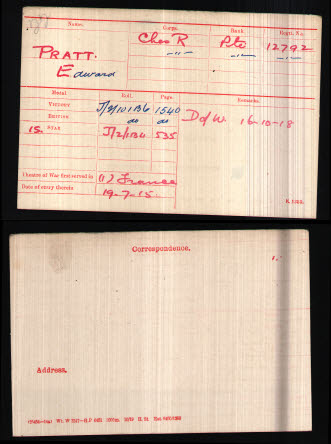 Name. Corps. Rank Regtl. No.
PRATT. Ches R Pte 12792
Edward -"- -"- -"-
Medal Roll. Page Remarks.
VICTORY J/2/101B6 1540 D of W. 16-10-18
BRITISH do do
15 STAR J/2/1B4 535
Theatre of War first served in (1) France
Date of entry therein 19-7-15.
K. 1380.
Correspondence.
Address.